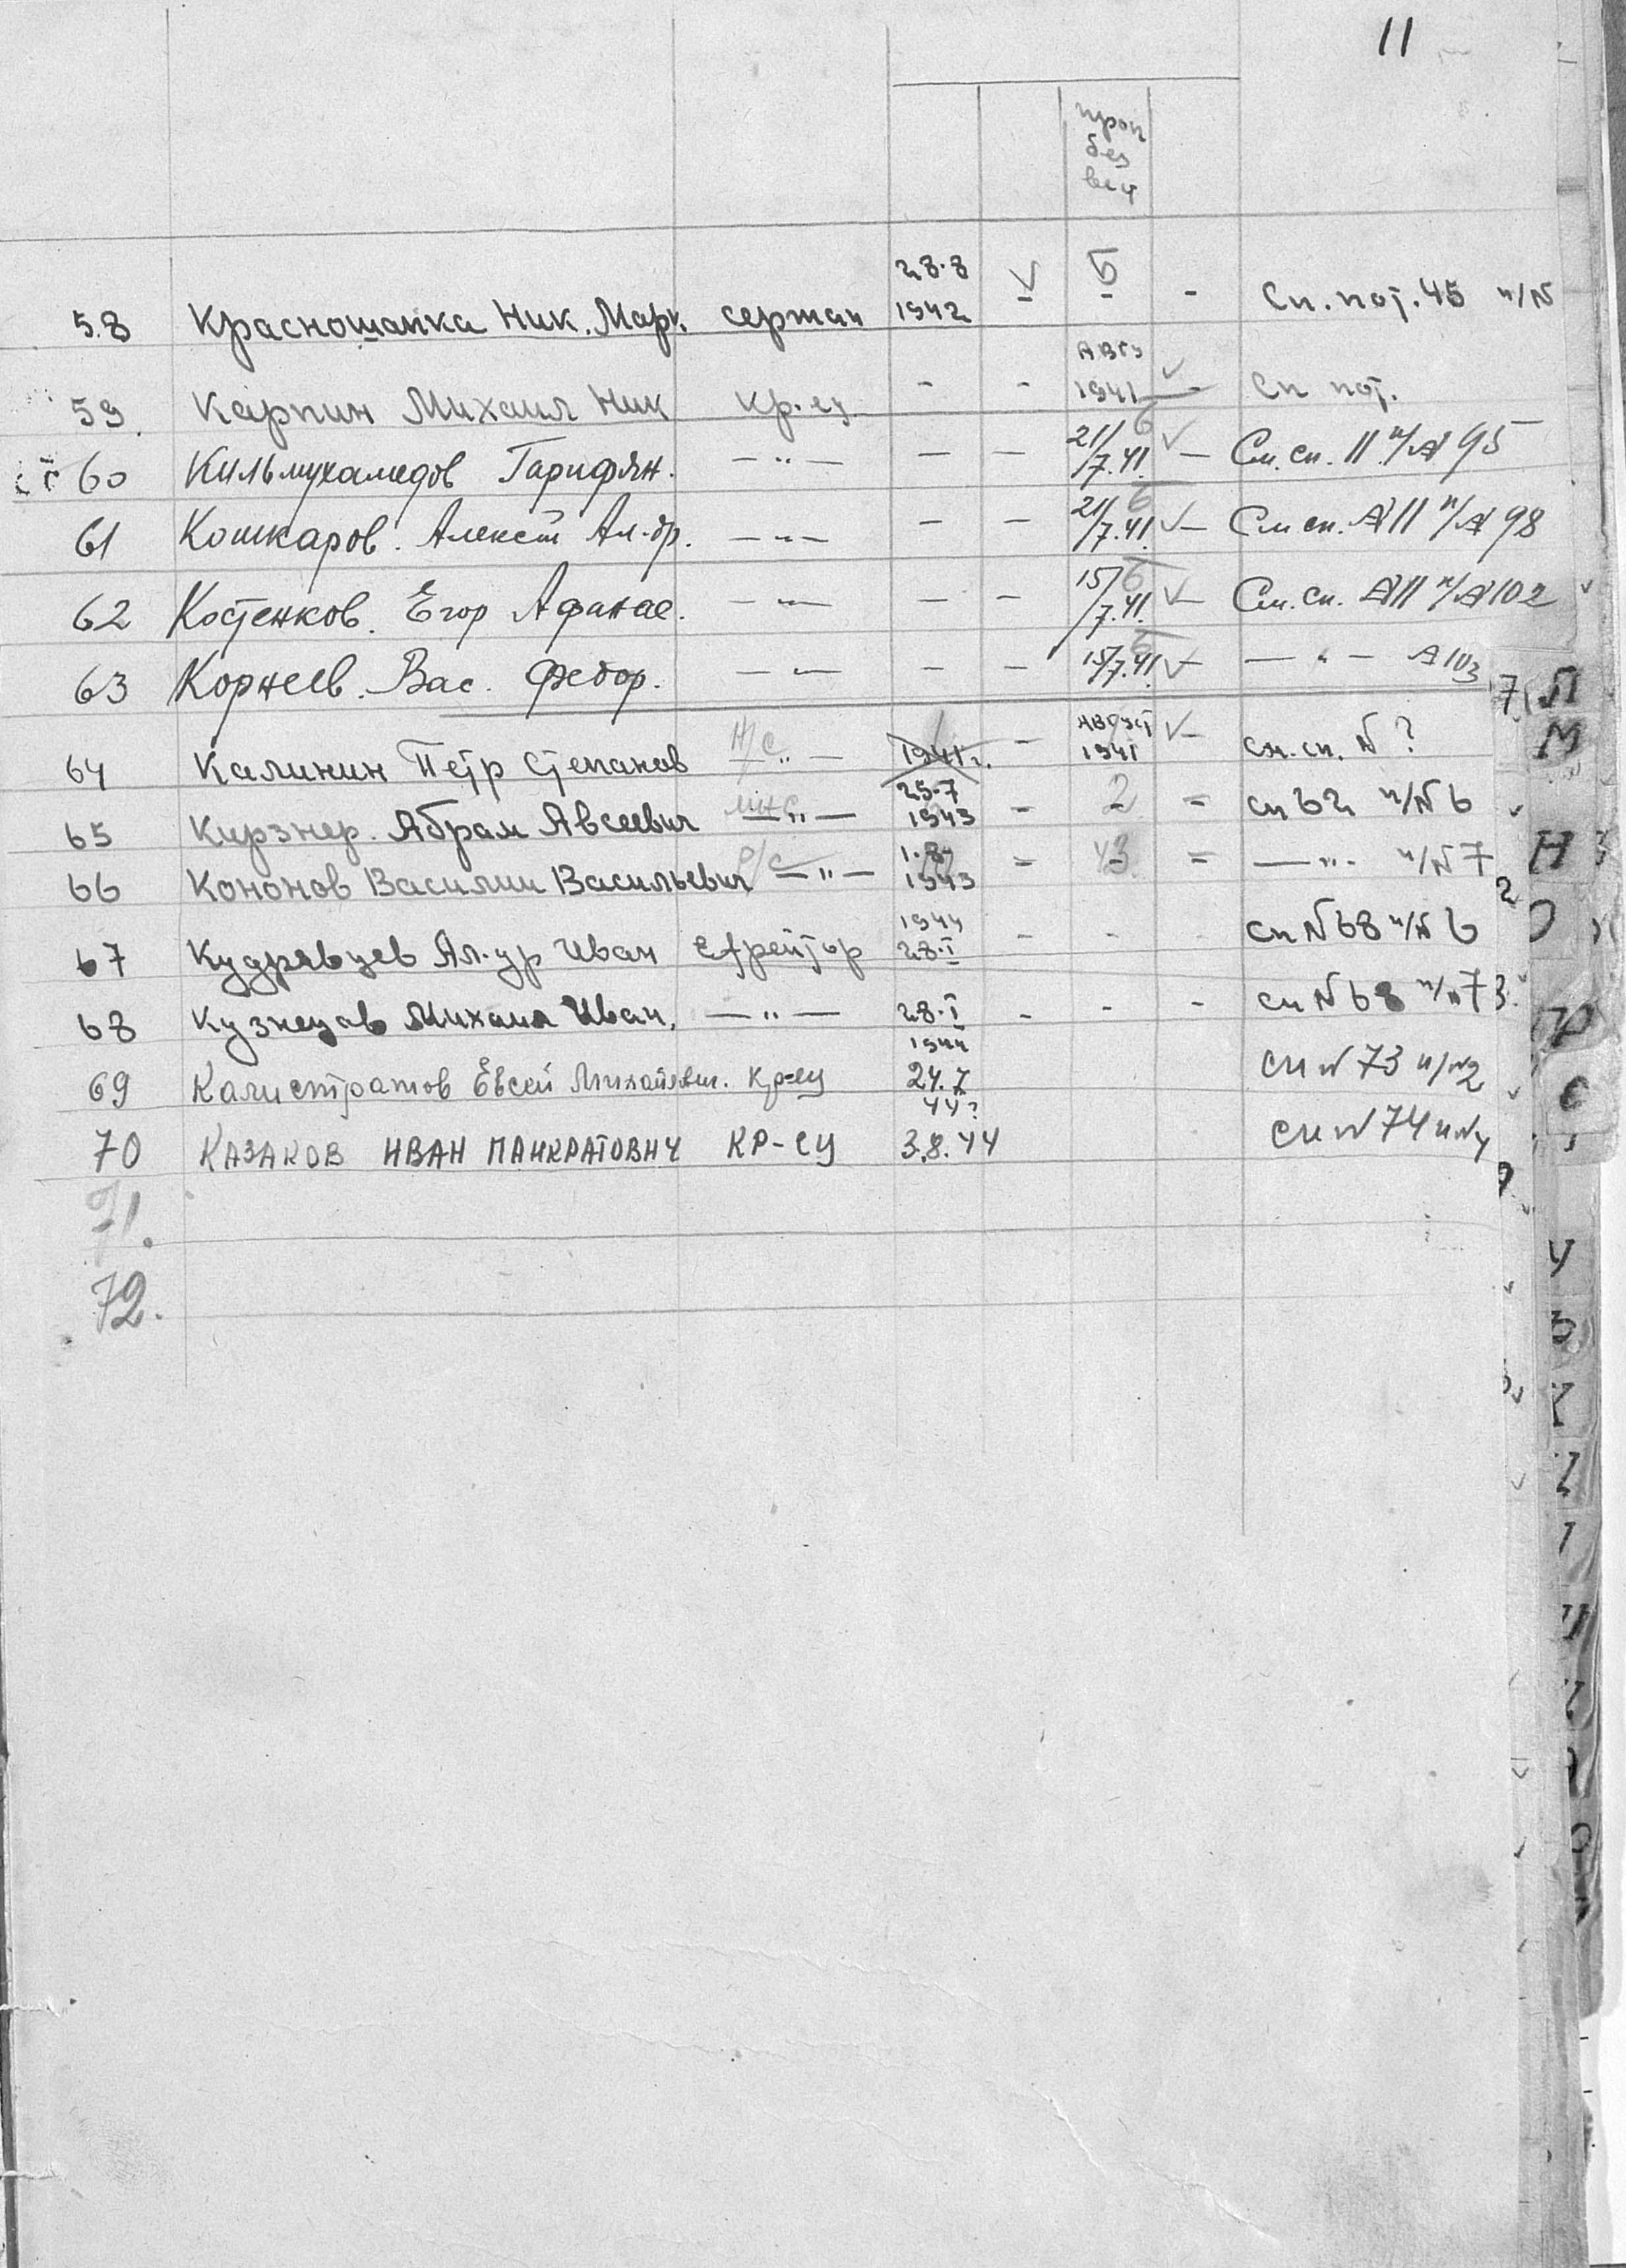 11
проп
без
вест
58 Красношапка Ник. Марк. сержан 28.8 1942 V 5 - Сп. пот. 45 п/N
59. Карпин Михаил Ник кр-ец - - Авгу 1941 V - Сп пот.
60 Кильмухамедов Гарифян. —"— — — 21/7.41. 6 V — См. сп. 11 п/№ 95
61 Кошкаров. Алексей Ал-др. —"— — — 21/7.41. 6 V — См сп. №11 п/№ 98
62 Костенков. Егор Афанас. —"— — — 15/7.41. 6 V — См. сп. №11 п/№ 102
63 Корнеев. Вас. Федор. —"— — — 15/7.41. 6 V — —"— №103
64 Калинин Петр Степанов Н/С —"— 1941г. - Август 1941 V - см. сп. N ?
65 Кирзнер. Абрам Авсеевич мнс —"— 25-7 1943 - 2 = сп 62 п/N 6
66 Кононов Василии Васильевич Р/С —"— 1.8- 1943 = 43 = —"— п/N 7
67 Кудрявцев Ал-др Иван Ефрейтор 1944 28.I - - - сп N 68 п/N 6
68 Кузнецов Михаил Иван. —"— 28.I 1944 - - - сп N 68 п/N 73.
69 Калистратов Евсей Михайлович. кр-ец 24.7 44? сп N 73 п/N 2
70 КАЗАКОВ ИВАН ПАНКРАТОВИЧ КР-ЕЦ 3.8.44 сп N 74 п N 4
71.
72.
Л
М
Н
О
П
Р
С
У